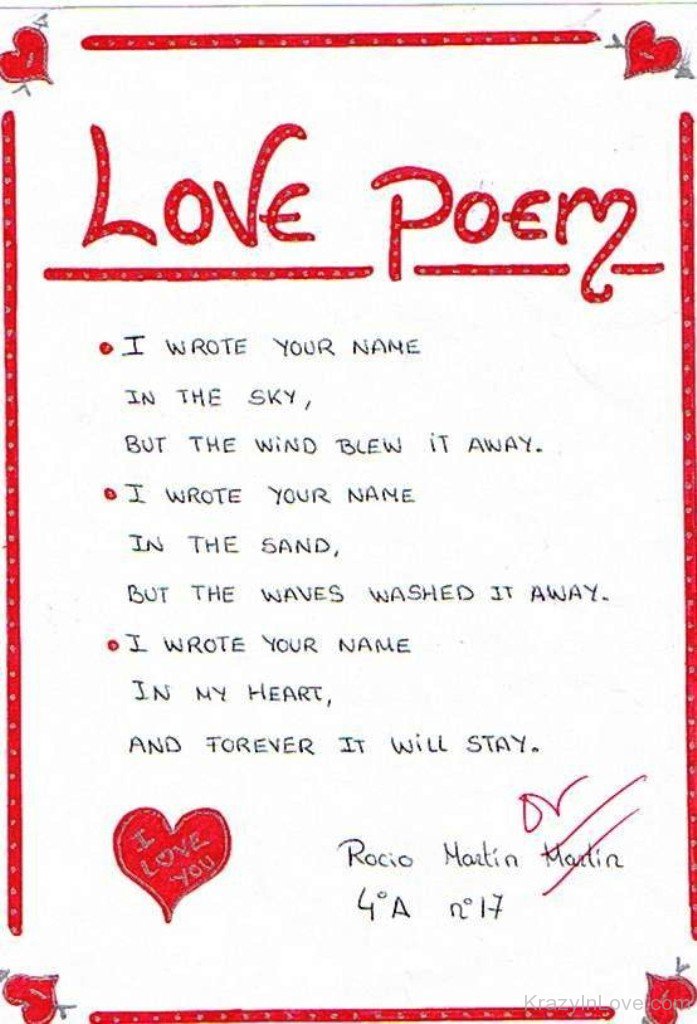 LOVE POEM
• I WROTE YOUR NAME
IN THE SKY,
BUT THE WIND BLEW IT AWAY.
• I WROTE YOUR NAME
IN THE SAND,
BUT THE WAVES WASHED IT AWAY.
• I WROTE YOUR NAME
IN MY HEART,
AND FOREVER IT WILL STAY.
I
LOVE
YOU
Rocio Martín Martín
4ºA nº17
KrazyInLove.com